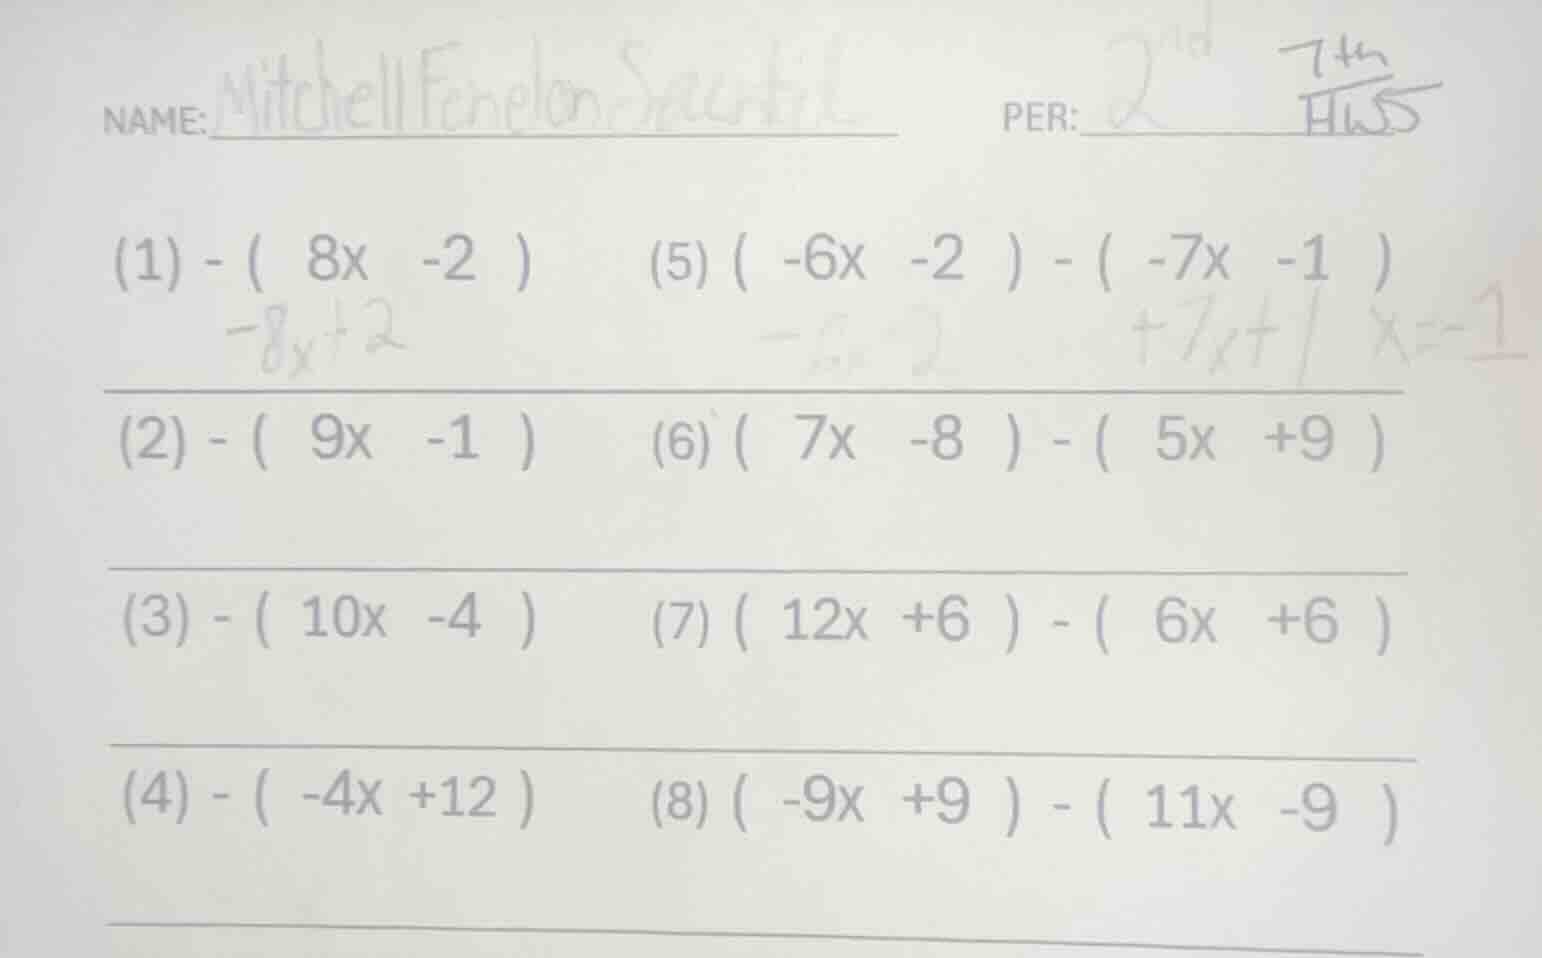 NAME: Mitchell Fenelon PER: 2nd 7th
HW5
(1) - ( 8x -2 ) (5) ( -6x -2 ) - ( -7x -1 )
-8x+2 -6x-2 +7x+1 x=-1
(2) - ( 9x -1 ) (6) ( 7x -8 ) - ( 5x +9 )
(3) - ( 10x -4 ) (7) ( 12x +6 ) - ( 6x +6 )
(4) - ( -4x +12 ) (8) ( -9x +9 ) - ( 11x -9 )